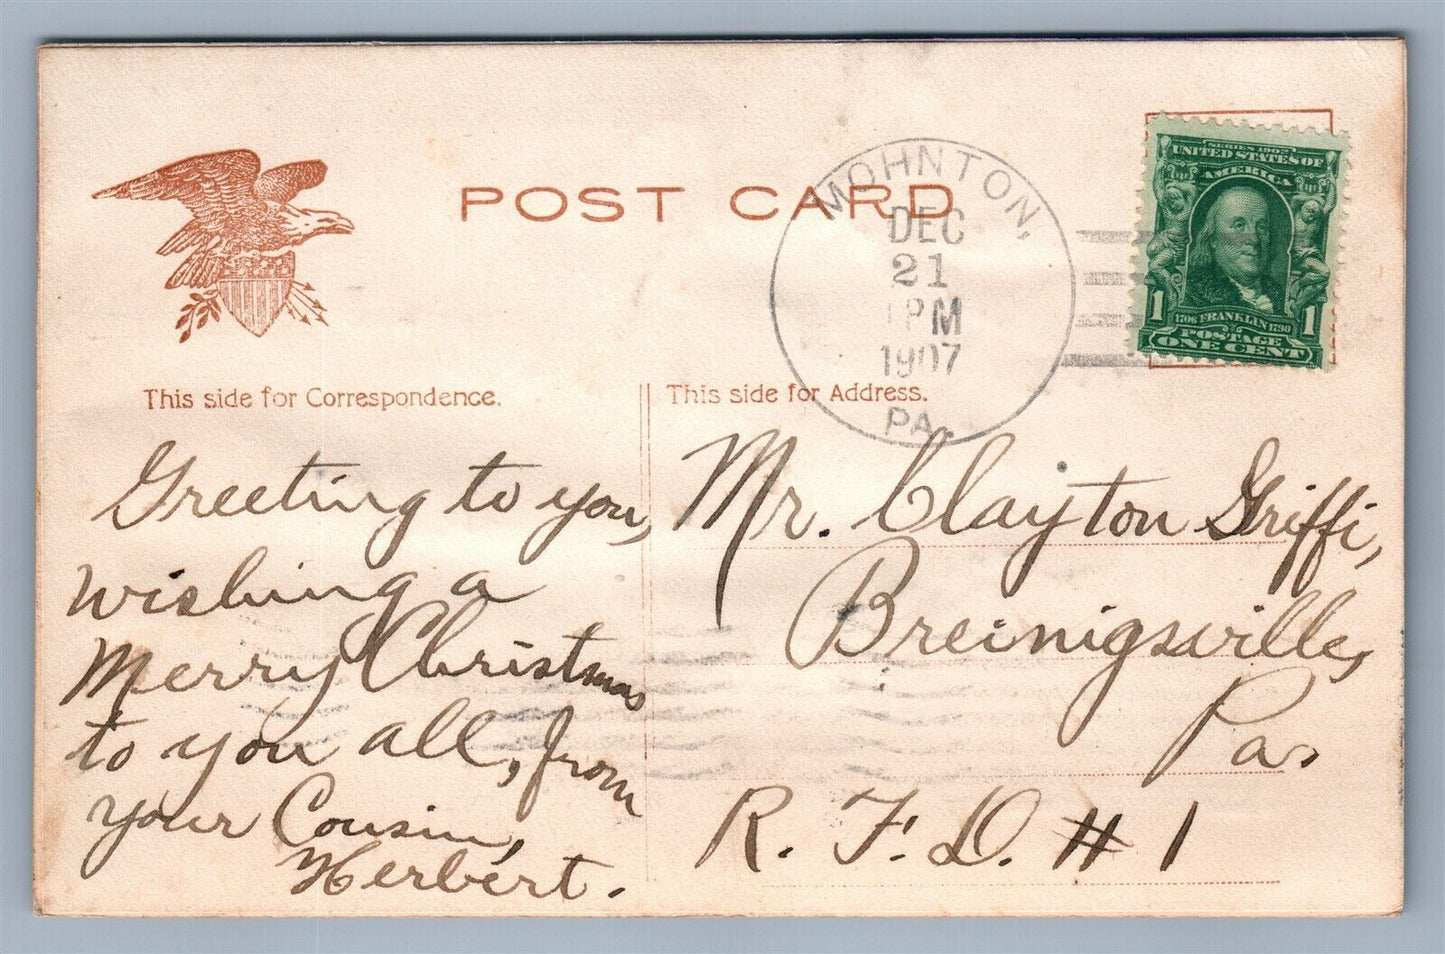 POST CARD
MOHNTON,
DEC
21
1PM
1907
PA.
SERIES 1902
UNITED STATES OF
AMERICA
1706 FRANKLIN 1790
1 1
POSTAGE
ONE CENT
This side for Correspondence.
This side for Address.
Greeting to you,
wishing a
Merry Christmas
to you all, from
your Cousin,
Herbert.
Mr. Clayton Griffi,
Breinigsville,
Pa.
R. F. D. # 1